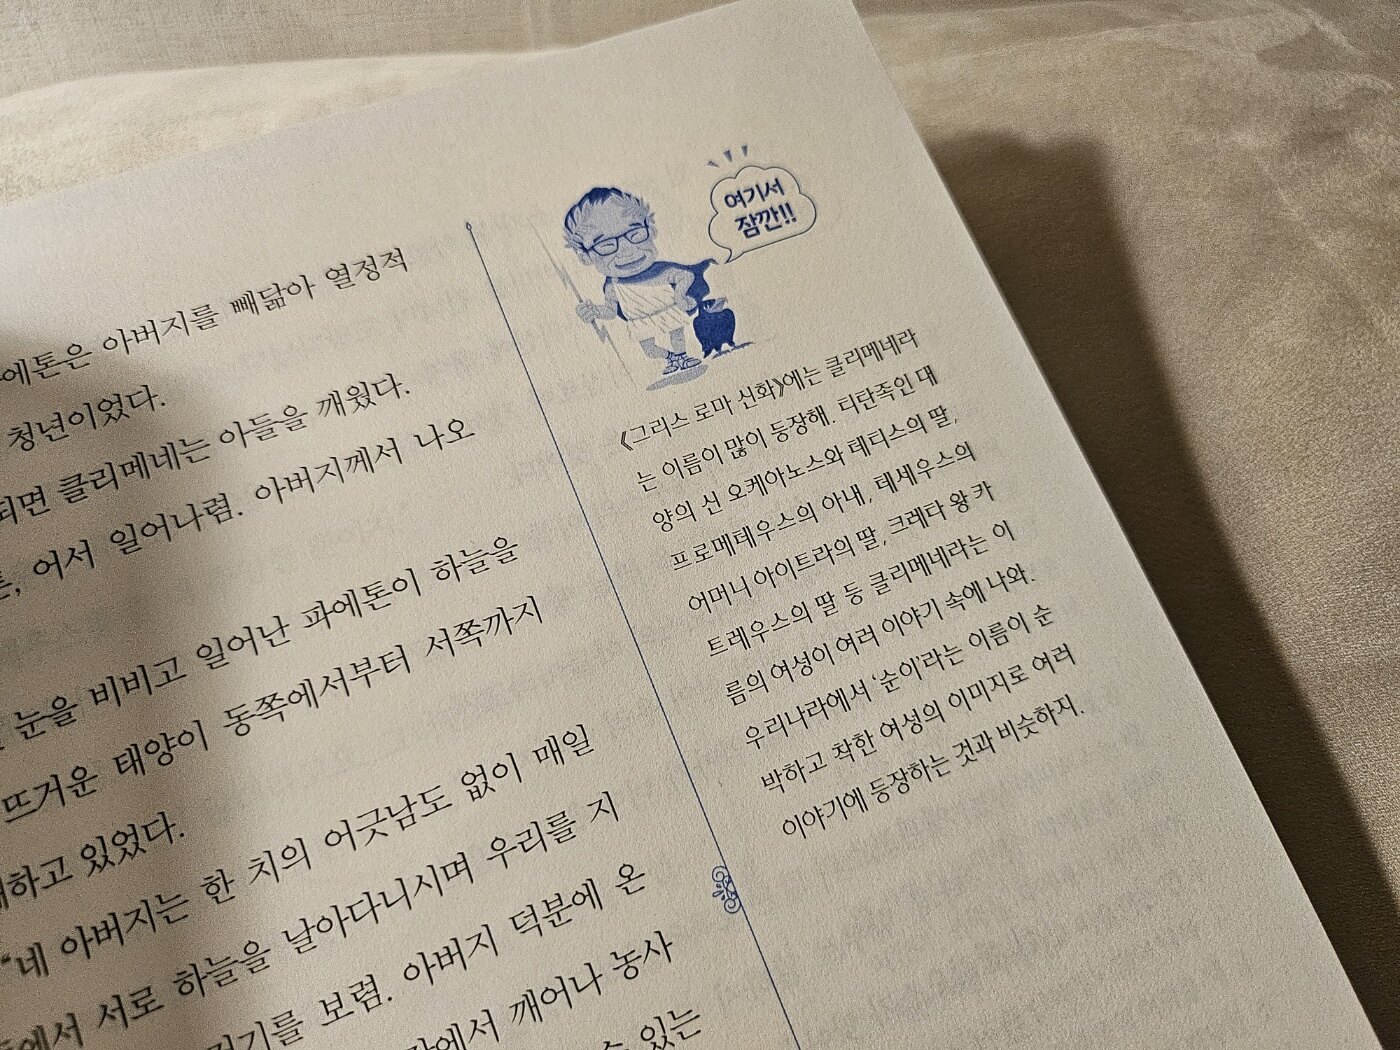 파에톤은 아버지를 빼닮아 열정적
청년이었다.
되면 클리메네는 아들을 깨웠다.
어서 일어나렴. 아버지께서 나오
눈을 비비고 일어난 파에톤이 하늘을
뜨거운 태양이 동쪽에서부터 서쪽까지
하고 있었다.
“네 아버지는 한 치의 어긋남도 없이 매일
에서 서로 하늘을 날아다니시며 우리를 지
보렴. 아버지 덕분에 온
깨어나 농사
있는
여기서
잠깐!!
《그리스 로마 신화》에는 클리메네라
는 이름이 많이 등장해. 티탄족인 대
양의 신 오케아노스와 테티스의 딸,
프로메테우스의 아내, 테세우스의
어머니 아이트라의 딸, 크레타 왕 카
트레우스의 딸 등 클리메네라는 이
름의 여성이 여러 이야기 속에 나와.
우리나라에서 ‘순이’라는 이름이 순
박하고 착한 여성의 이미지로 여러
이야기에 등장하는 것과 비슷하지.